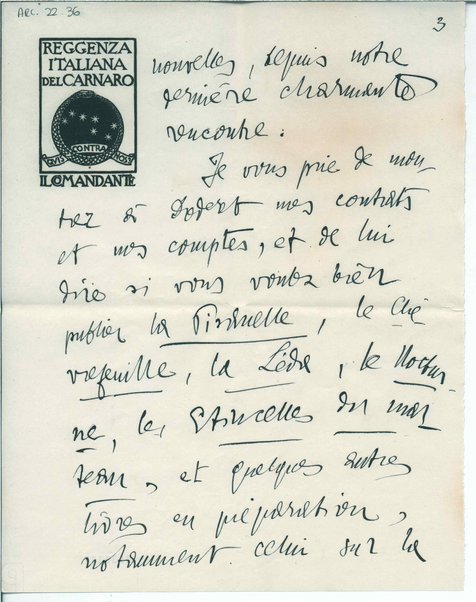 ARC. 22.36
3
REGGENZA
ITALIANA
DEL CARNARO
QUIS CONTRA NOS
IL COMANDANTE
nouvelles, depuis notre
dernière charmante
rencontre.
Je vous prie de mon-
trer à Doderet mes contrats
et mes comptes, et de lui
dire si vous voulez bien
publier la Pisanelle, le Chè
vrefeuille, la Léda, le Noctur-
ne, les Etincelles du mar
teau, et quelques autres
livres en préparation,
notamment celui sur la